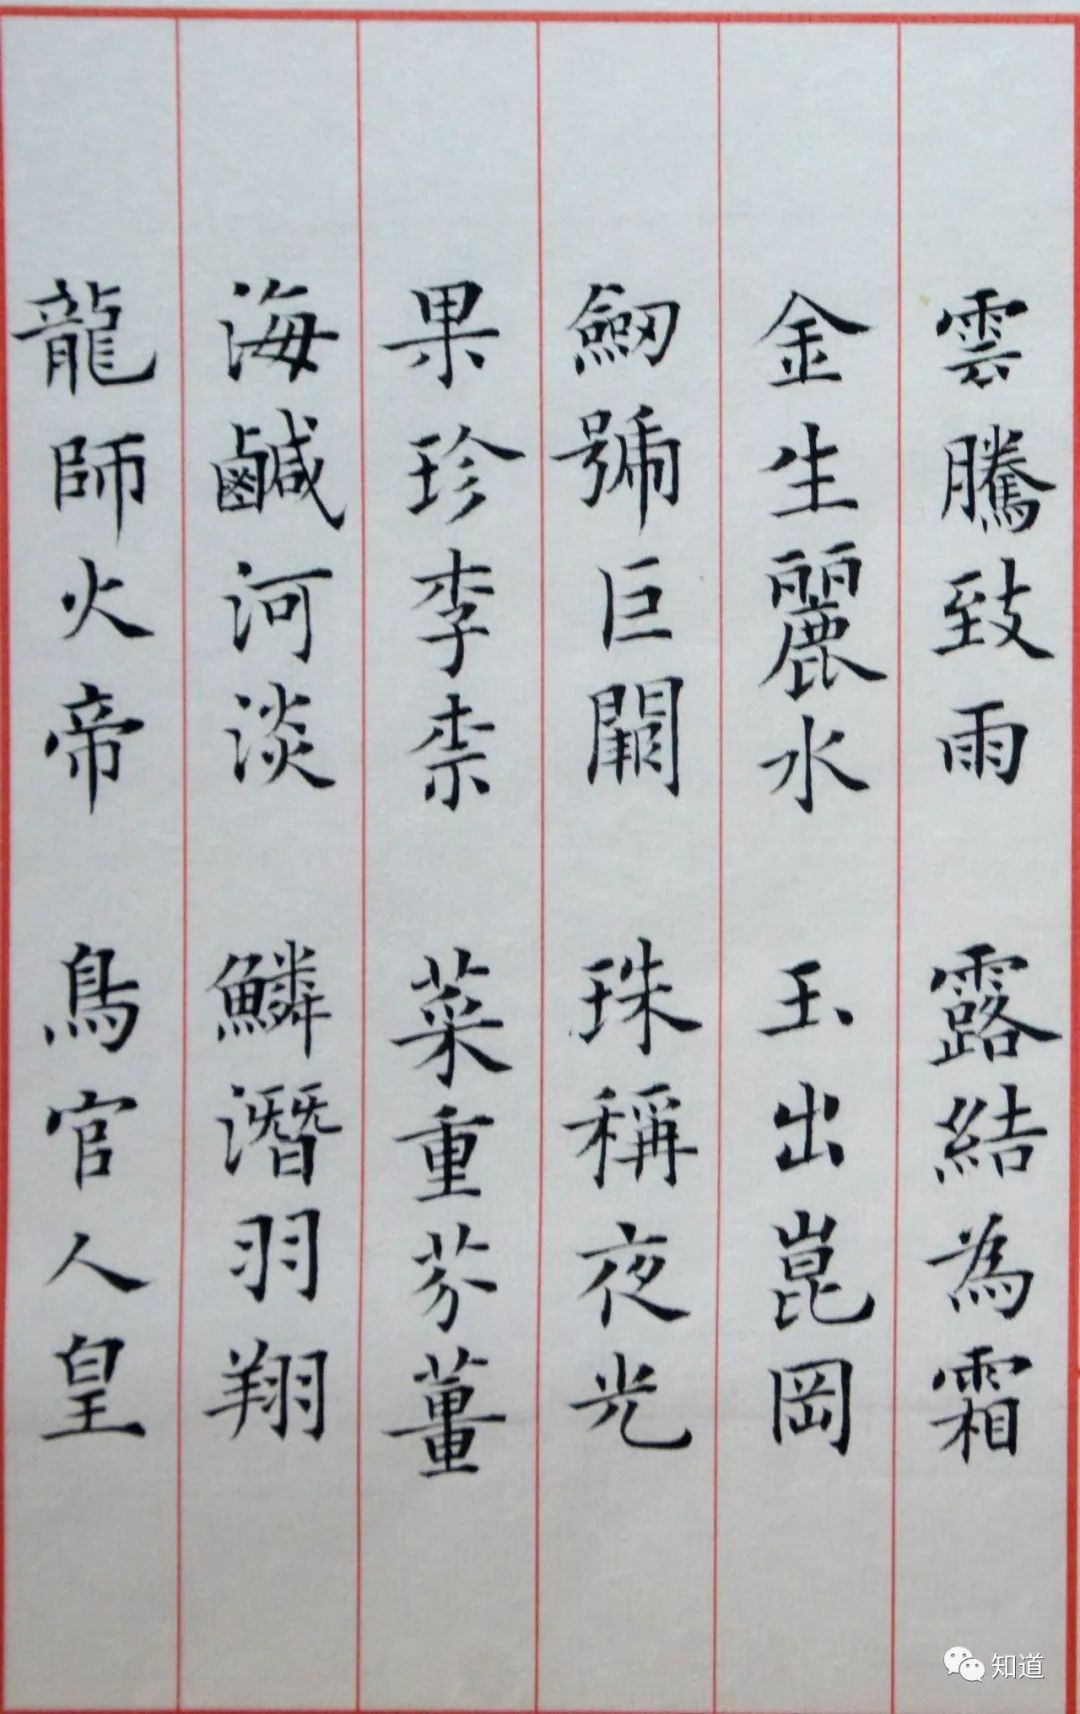 雲騰致雨 露結為霜
金生麗水 玉出崑岡
劒號巨闕 珠稱夜光
果珍李柰 菜重芥薑
海鹹河淡 鱗潛羽翔
龍師火帝 鳥官人皇
知道